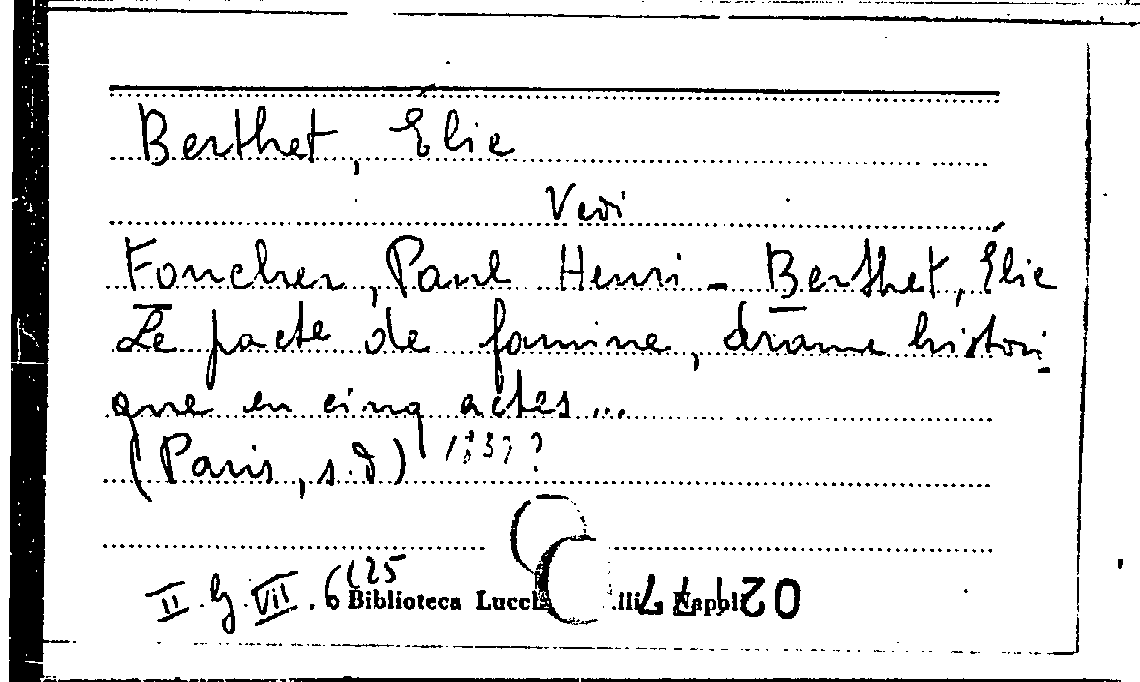 Berthet, Elie
Vedi
Foucher, Paul Henri - Berthet, Élie
Le pacte de famine, drame histori-
que en cinq actes...
(Paris, s.d) 1837?
II.G.VII.6(25
Biblioteca Lucch lli Napoli